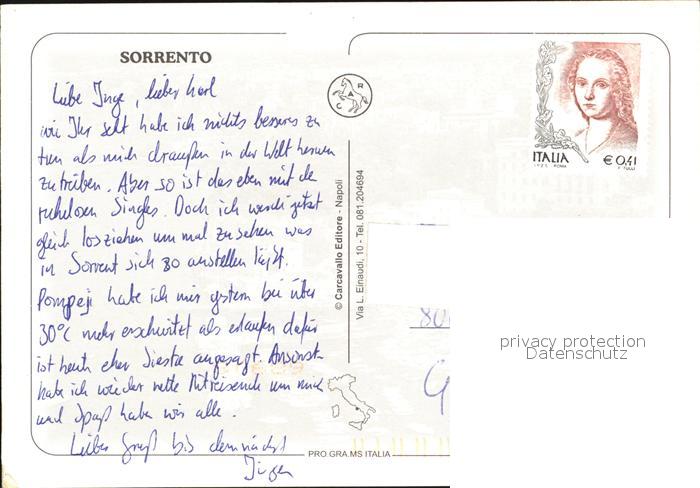 SORRENTO
Liebe Inge, lieber Karl
wie Ihr seht habe ich nichts besseres zu
tun als mich draußen in der Welt herum
zutreiben. Aber so ist das eben mit de
ruhelosen Singles. Doch ich werde jetzt
gleich losziehen um mal zu sehen was
in Sorrent sich so anstellen läßt.
Pompeji habe ich mir gestern bei über
30°C mehr erschwitzt als erlaufen dafür
ist heute eher Siesta angesagt. Ansonst
habe ich wieder nette Mitreisende um mich
und Spaß haben wir alle.
Lieber Gruß bis demnächst
Jürgen
C A R
© Carcavallo Editore - Napoli
Via L. Einaudi, 10 - Tel. 081.204694
PRO GRA.MS ITALIA
ITALIA
€ 0,41
80
privacy protection
Datenschutz